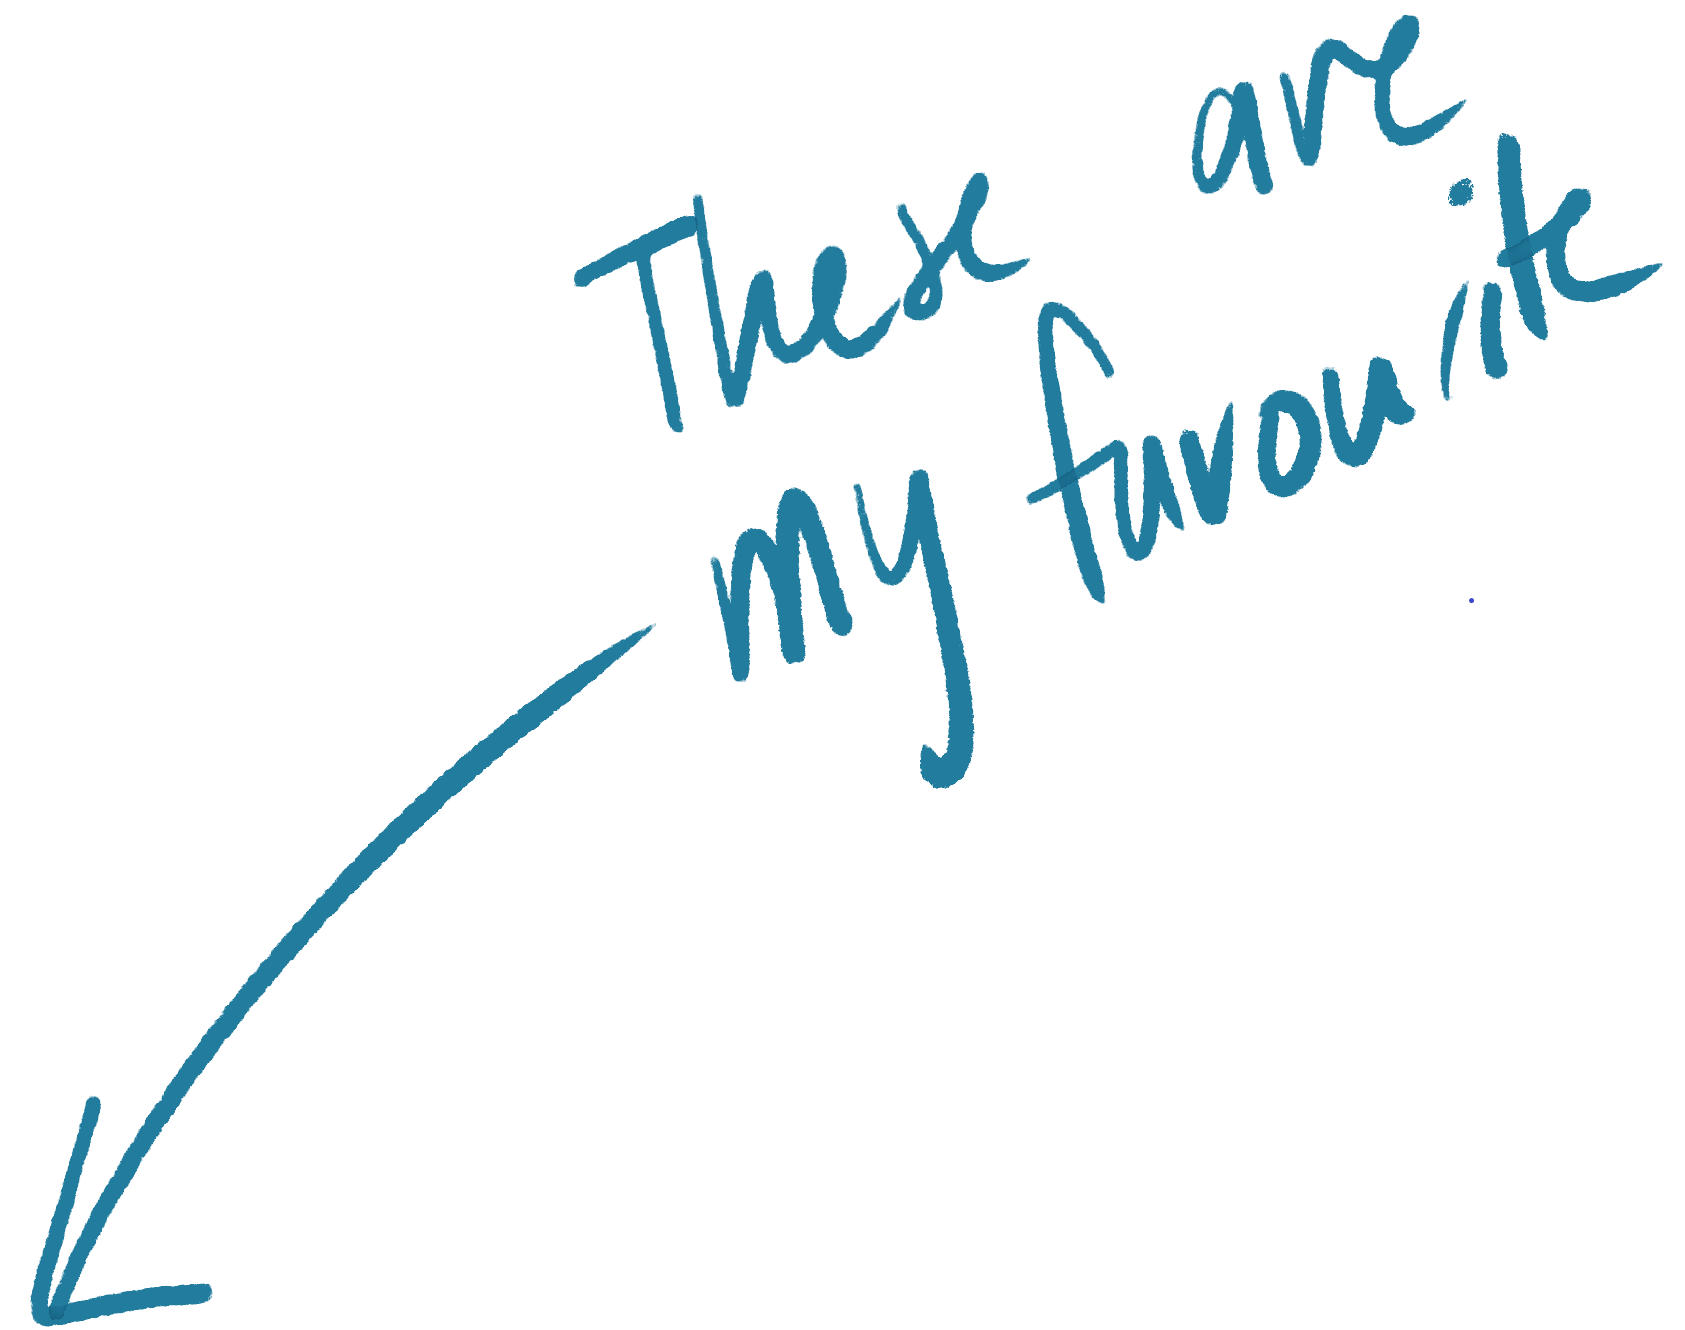 These are
my favourite